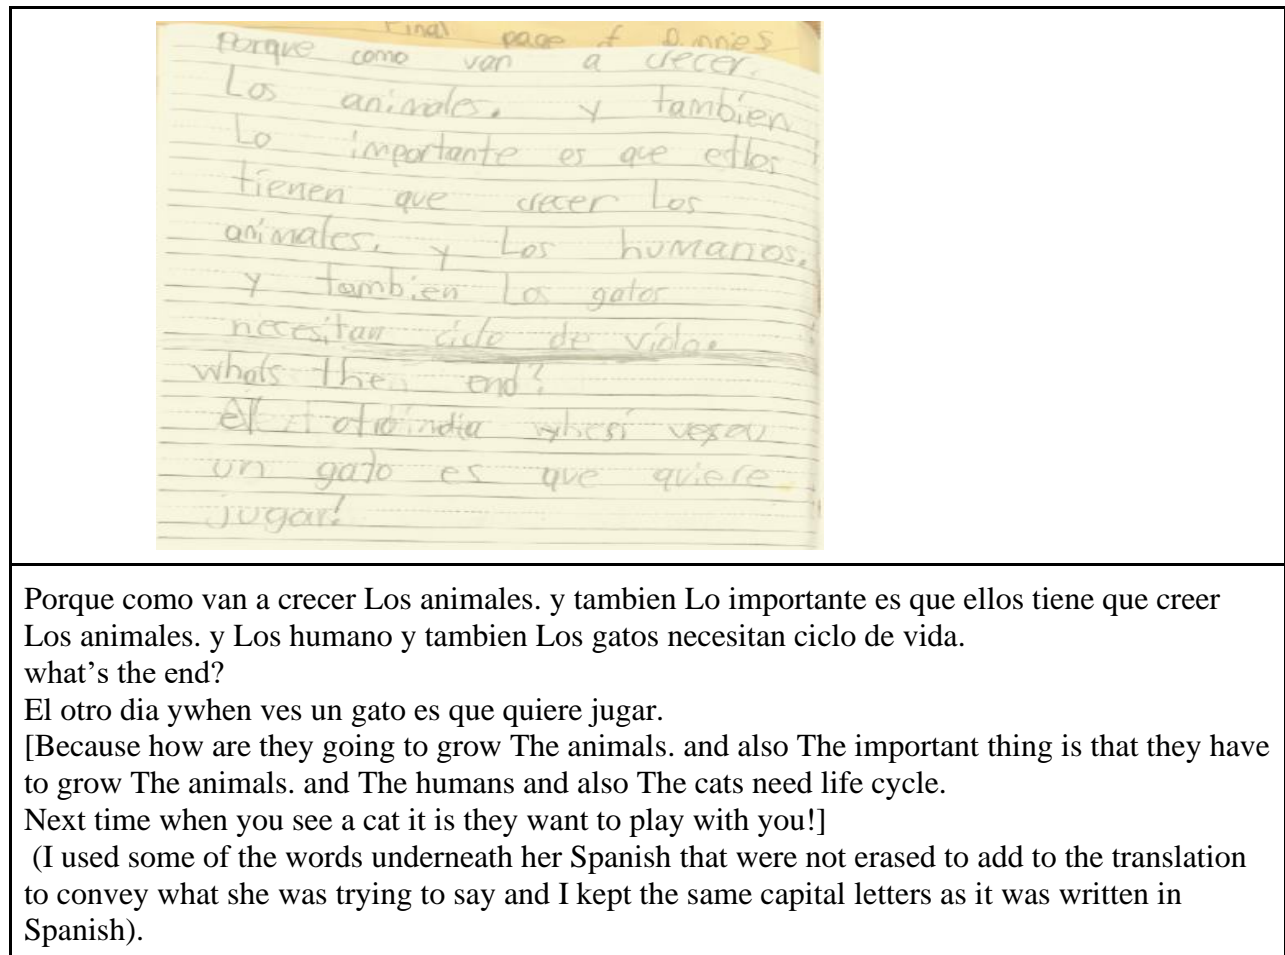 Final page of
Porque como van a crecer.
Los animales. y tambien
Lo importante es que ellos
tienen que crecer Los
animales. y Los humanos.
y tambien Los gatos
necesitan ciclo de vida.
whats the end?
El otro dia ves
un gato es que quiere
jugar!
Porque como van a crecer Los animales. y tambien Lo importante es que ellos tiene que creer
Los animales. y Los humano y tambien Los gatos necesitan ciclo de vida.
what’s the end?
El otro dia ywhen ves un gato es que quiere jugar.
[Because how are they going to grow The animals. and also The important thing is that they have
to grow The animals. and The humans and also The cats need life cycle.
Next time when you see a cat it is they want to play with you!]
(I used some of the words underneath her Spanish that were not erased to add to the translation
to convey what she was trying to say and I kept the same capital letters as it was written in
Spanish).